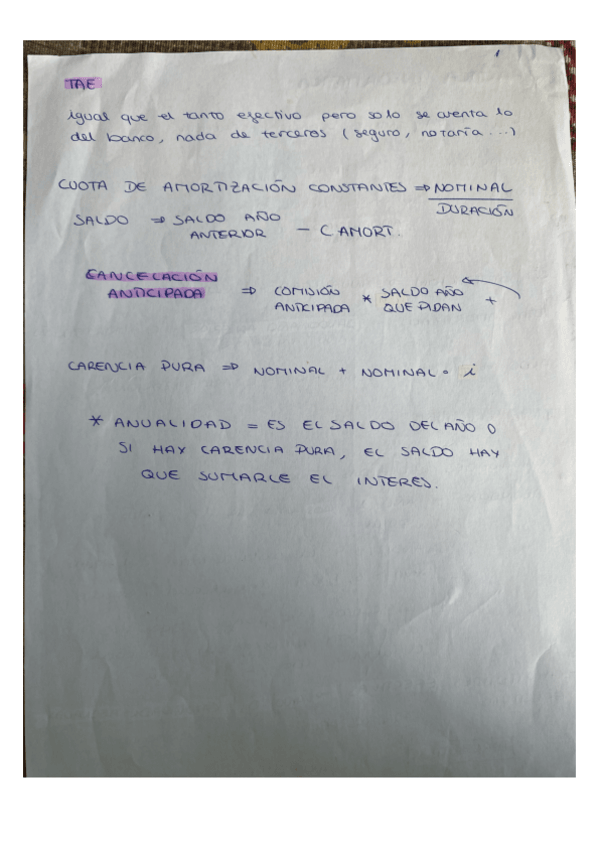 TAE
igual que el tanto efectivo pero solo se cuenta lo
del banco, nada de terceros (seguro, notaría...)
CUOTA DE AMORTIZACIÓN CONSTANTES ⇒ NOMINAL
DURACIÓN
SALDO ⇒ SALDO AÑO
ANTERIOR - C AMORT.
CANCELACIÓN
ANTICIPADA ⇒ COMISIÓN
ANTICIPADA * SALDO AÑO
QUE PIDAN +
CARENCIA PURA ⇒ NOMINAL + NOMINAL · i
* ANUALIDAD = ES EL SALDO DEL AÑO 0
SI HAY CARENCIA PURA, EL SALDO HAY
QUE SUMARLE EL INTERES.